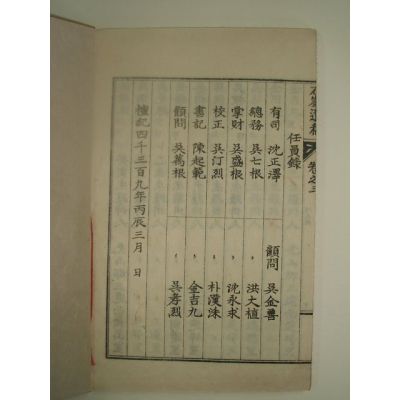 任員錄
有司 沈正澤 顧問 吳金善
總務 吳七根 洪大植
掌財 吳盛根 沈永求
校正 吳汀烈 朴漢洙
書記 陳起範 金吉九
顧問 吳萬根 吳孝烈
檀紀四千三百九年丙辰三月 日
卷之三